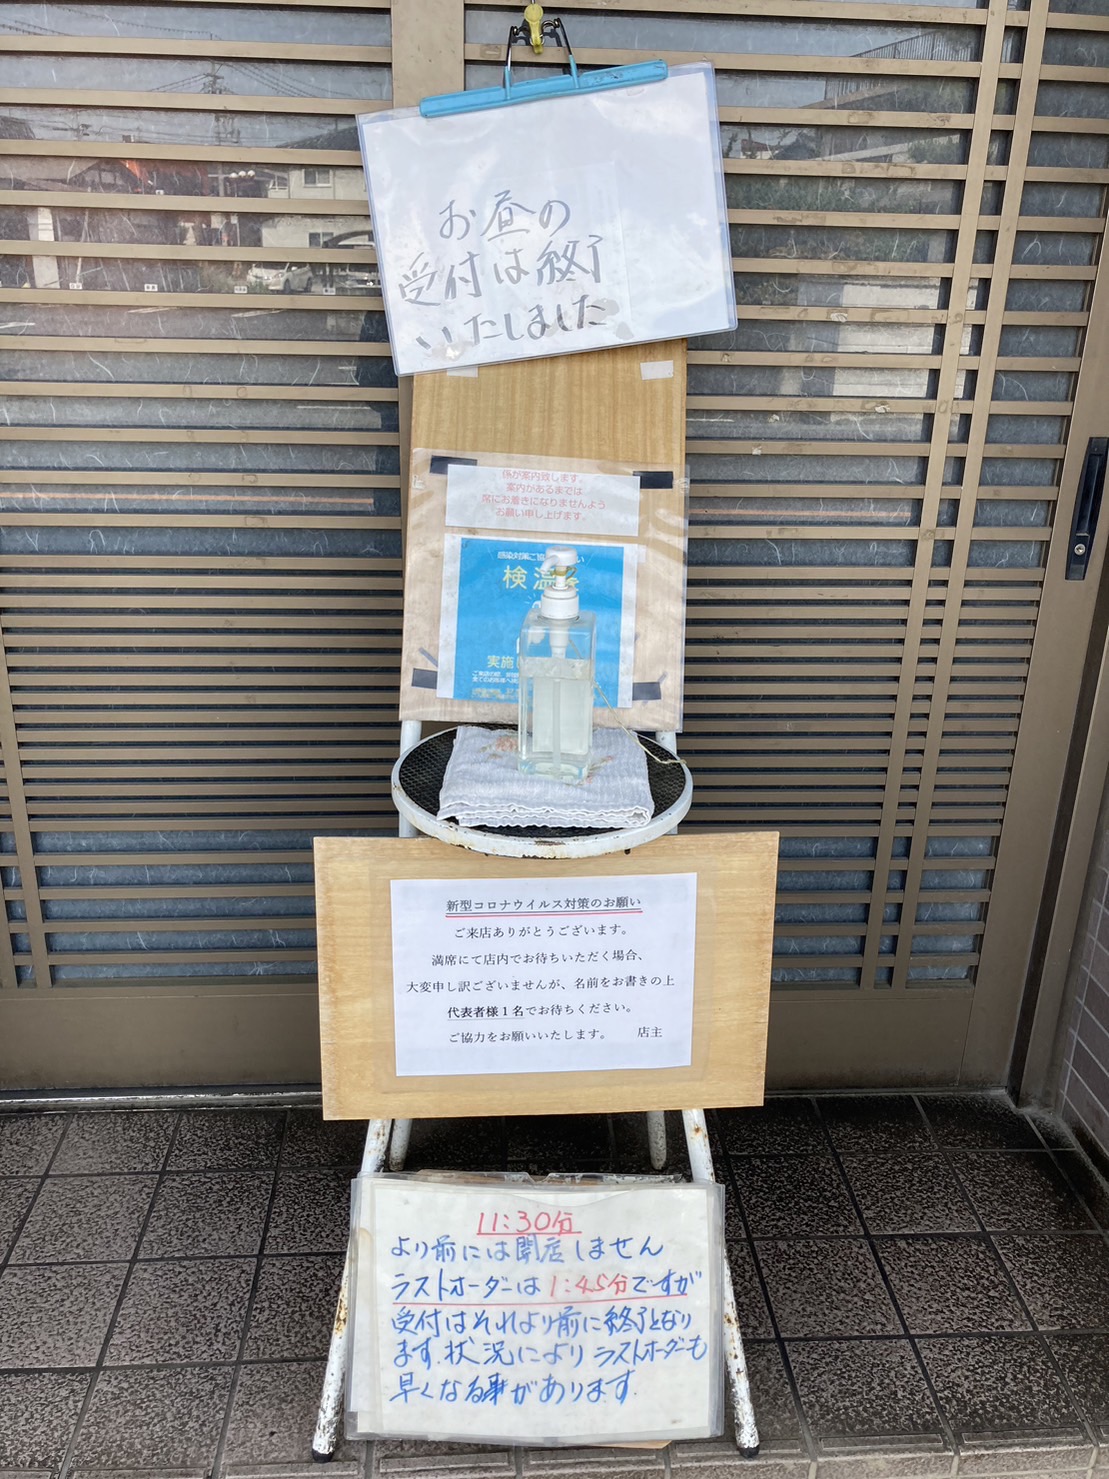 お昼の
受付は終了
いたしました
係が案内致します。
案内があるまでは
席にお着きになりませんよう
お願い申し上げます。
感染対策ご協
い
検温を
実施し
新型コロナウイルス対策のお願い
ご来店ありがとうございます。
満席にて店内でお待ちいただく場合、
大変申し訳ございませんが、名前をお書きの上
代表者様1名でお待ちください。
ご協力をお願いいたします。 店主
11:30分
より前には開店しません
ラストオーダーは1:45分ですが
受付はそれより前に終了となり
ます.状況によりラストオーダーも
早くなる事があります.